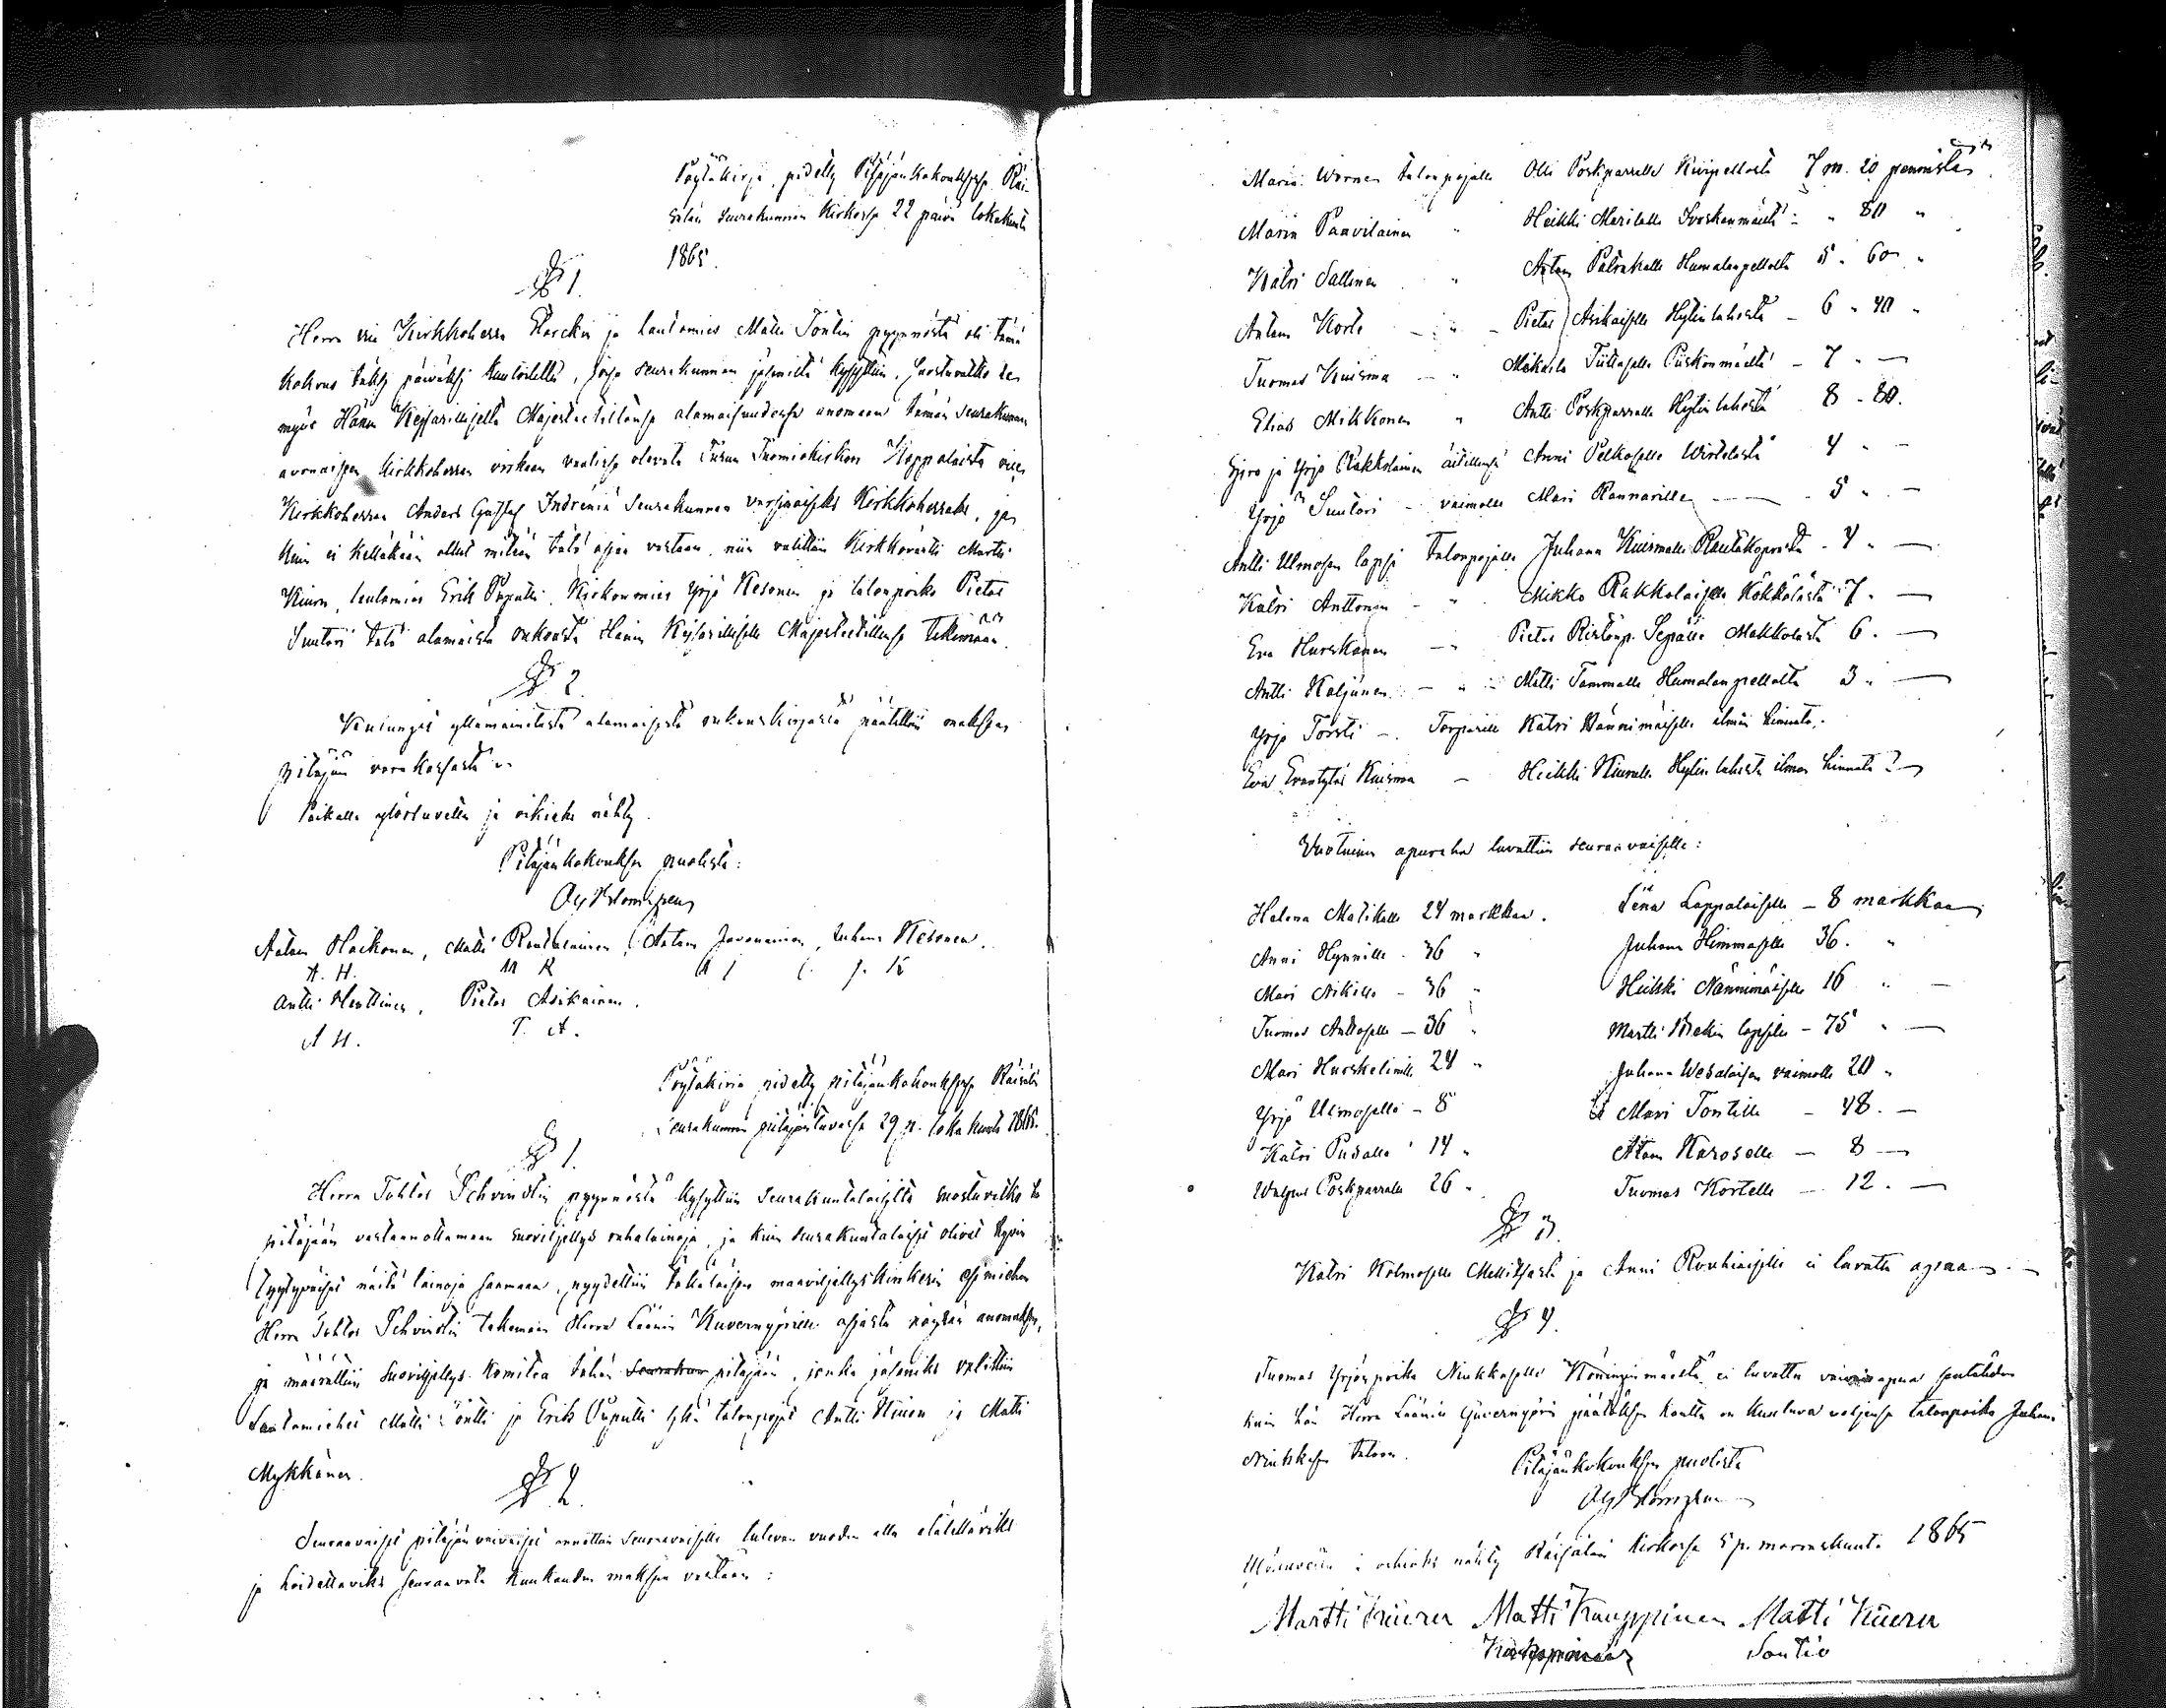 Pöytäkirja, pidetty Pitäjänkokouksessa Räi-
sälän seurakunnan Kirkossa 22 päivä lokakuuta
1865.
§ 1.
Herra Kirkkoherra ja lautamies Matti Tontin pyynnöstä oli tämä
kokous täksi päiväksi kuulutettu, jossa seurakunnan jäseniltä kysyttiin, suostuvatko he
myös Hänen Keisarilliselta Majesteetiltänsä alamaisuudessa anomaan tämän seurakunnan
avonaisen Kirkkoherran virkaan vaalissa olevata Turun Tuomiokirkon Kappalaista
Kirkkoherraa Anders Gustaf Indrenia Seurakunnan varsinaiseksi Kirkkoherraksi, ja
kuin ei kelläkään ollut mitään tätä asiaa vastaan, niin valittiin Kirkkoväärti Martti
Kiuru, lautamies Erik Puputti, Kirkonmies Yrjö Kesonen ja talonpoika Pietar
Suutari tätä alamaista rukousta Hänen Keisarilliselle Majesteetillensa tekemään.
§ 2.
Kulungit yllämainitusta alamaisesta rukouskirjasta päätettiin maksaa
pitäjän varakassasta.
Paikalla ylösluettu ja oikiaksi nähty.
Pitäjänkokouksen puolesta:
Adam Haikonen, Matti Rantalainen, Antam Javanainen, Juhana Kesonen.
A. H. M R A J J. K
Antti Henttinen, Pietar Asikainen.
A H. P. A.
Pöytäkirja pidetty pitäjänkokouksessa Räisälän
Seurakunnan pitäjäntuvassa 29 p. lokakuuta 1865.
§ 1.
Herra Tohtor Schvindtin pyynnöstä kysyttiin Seurakuntalaisilta suostuvatko he
pitäjään vastaanottamaan suoviljellys rahalainoja, ja kuin seurakuntalaiset olivat hyvin
tyytyväiset näitä lainoja saamaan, pyydettiin täkäläisen maaviljellyskinkerin esimiehen
Herra Tohtor Schvindtin tekemään Herra Läänin Kuvernyörille asiasta nöyrän anomuksen,
ja määrättiin Suoviljellys Komitea tähän pitäjään, jonka jäseniksi valittiin
Lautamiehet Matti Tontti ja Erik Puputti sekä talonpojat Antti Kiuru ja Matti
Mykkänen.
§ 2.
Seuraavaiset pitäjän vaivaiset annettiin seuraavaisille tulevan vuoden alla elätettäviksi
ja hoidettaviksi seuraavata kuukauden maksua vastaan:
Maria Wornen talonpojalle Olli Poskparralle Kiiripellosta 7 m. 20 pennistä
Maria Paavilainen " Heikki Marilalle Ivoskanmäeltä - " 80 "
Katri Sallinen " Adam Pätrikalle Humalanpellolta 5 " 60 "
Antam Korte - " - Pietar Asikaiselle Hytinlahesta - 6 " 40 "
Tuomas Kuisma - " Mikaila Tiittaselle Piiskonmäeltä - 7 " —
Elias Mikkonen " Antti Poskparralle Hytinlahesta 8 - 80.
ja Yrjö Pakkolainen äitillensä Anni Pelkoselle Wirtelästä 4 " -
Yrjö Suutari - vaimolle Mari Rannarille — 5 " —
Antti Ulmosen lapsi talonpojalle Juhana Kuismalle - 4 " —
Katri Anttonen - " Mikko Pakkolaiselle Kökkölästä 7. —
Eva Hurskanen - " Pietar Ristonp. Sepälle Makkolasta 6. —
Antti Kaljunen - " - Matti Tammelle Humalanpellolta 3 " —
Yrjö Torsti -. Torparille Katri Nännimäiselle ilman hinnata.
Eva Evantytär Kuisma - Heikki Kiurulle Hytinlahesta ilman hinnata —
Vuotuinen apuraha luvattiin seuraavaiselle:
Helena Matikalle 24 markkaa. Lena Lappalaiselle - 8 markkaa
Anni Hynnille - 36 " Juhana Himmaselle 36. "
Mari Aikille - 36 " Heikki Nännimäiselle 16 " —
Tuomas Anttoselle - 36 " Martti lapsille - 75 " —
Mari Hurskelinille 24 " Juhana Wesalaisen vaimolle 20 "
Yrjö Ulmoselle - 8 Mari Tontille - 48. —
Katri Pusalle 14 " Atam Karoselle — 8 —
Walpuri Poskparralle 26 " Tuomas Kortelle — 12. —
§ 3.
Katri Kolmoselle Mellitsasta ja Anni Rouhiaiselle ei luvattu apua —
§ 4.
Tuomas Yrjönpoika NinkkaselleKöningin mäestä ei luvattu vaivaisapua
kuin hän Herra Läänin Guvernyörin päätöksen kautta on kuuluva veljensä talonpoika Juhana
Ninkkasen taloon.
Pitäjänkokouksen puolesta
Ylösluettu ja oikiaksi nähty Räisälän Kirkossa 5 p. marraskuuta 1865
Martti Kiuru Matti Kauppinen Matti Kiuru
Kauppinen Sontio